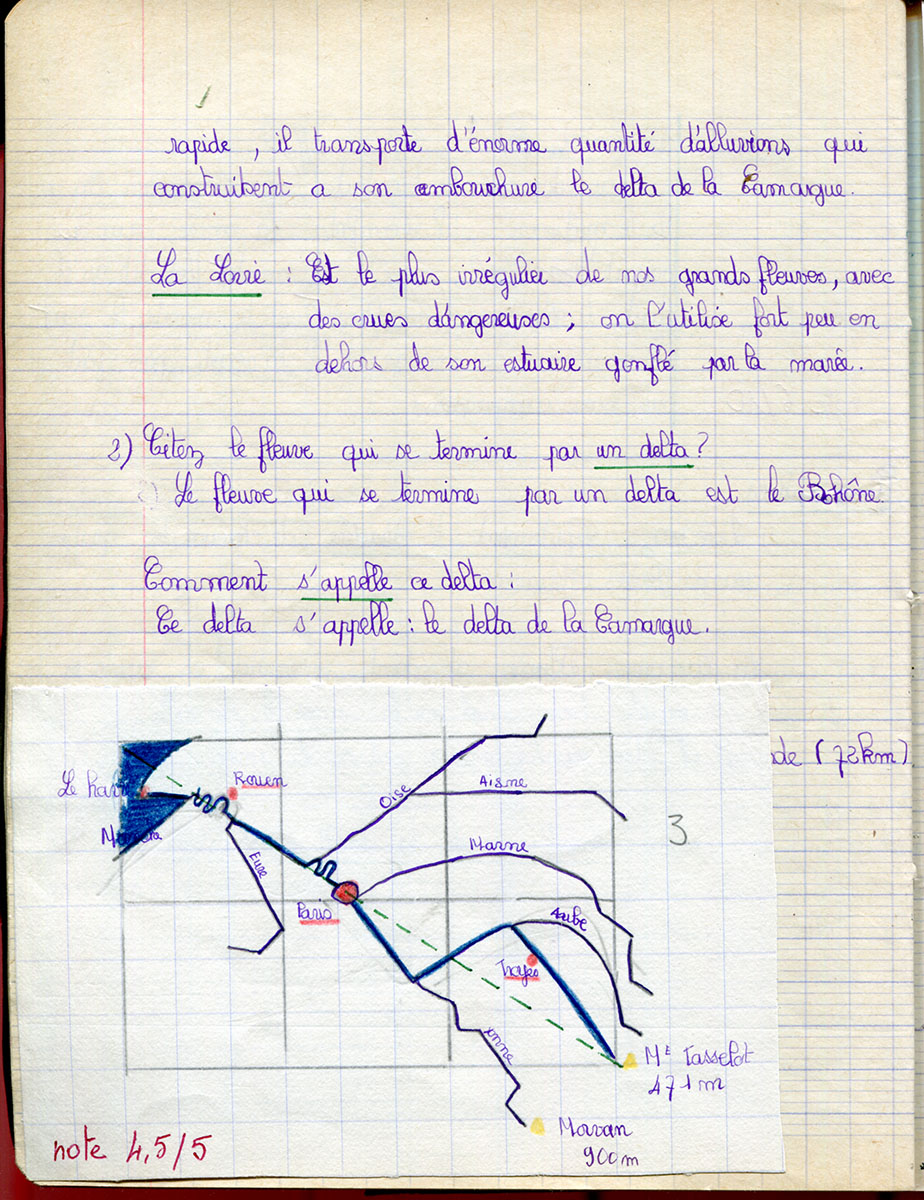 rapide, il transporte d'énorme quantité d'alluvions qui
construisent a son embouchure le delta de la Camargue.
La Loire : Est le plus irrégulier de nos grands fleuves, avec
des crues dangereuses ; on l'utilise fort peu en
dehors de son estuaire gonflé par la marée.
2) Citez le fleuve qui se termine par un delta?
Le fleuve qui se termine par un delta est le Rhône.
Comment s'appelle ce delta :
Ce delta s'appelle : le delta de la Camargue.
de (72km)
Le hav
Rouen
Oise
Aisne
3
Eure
Marne
Paris
Aube
Troyes
Yonne
Mt Tasselot
471m
Morvan
900m
note 4,5/5